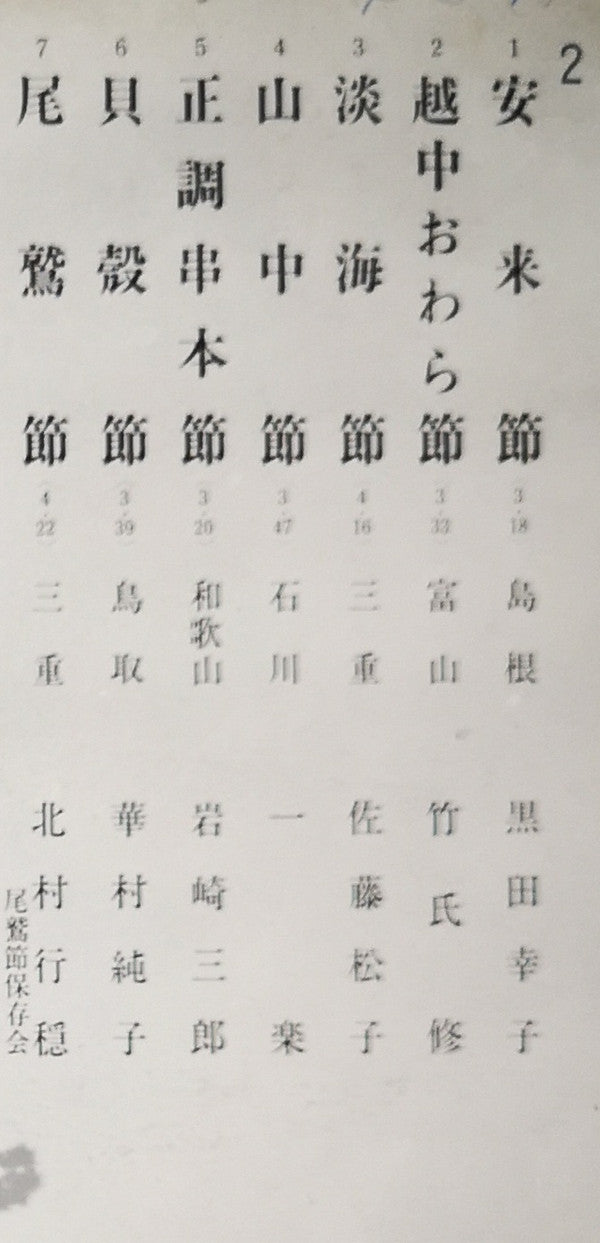 2
1 安来節 3・18 島根 黒田幸子
2 越中おわら節 3・33 富山 竹氏修
3 淡海節 4・16 三重 佐藤松子
4 山中節 3・47 石川 一楽
5 正調串本節 3・20 和歌山 岩崎三郎
6 貝殻節 3・39 鳥取 華村純子
7 尾鷲節 4・22 三重 北村行穏
尾鷲節保存会